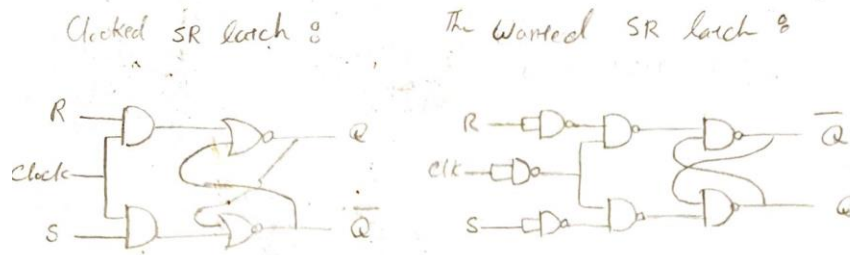 Clocked SR latch :
R
Clock
S
Q
Q̅
The Wanted SR latch :
R
Clk
S
Q̅
Q